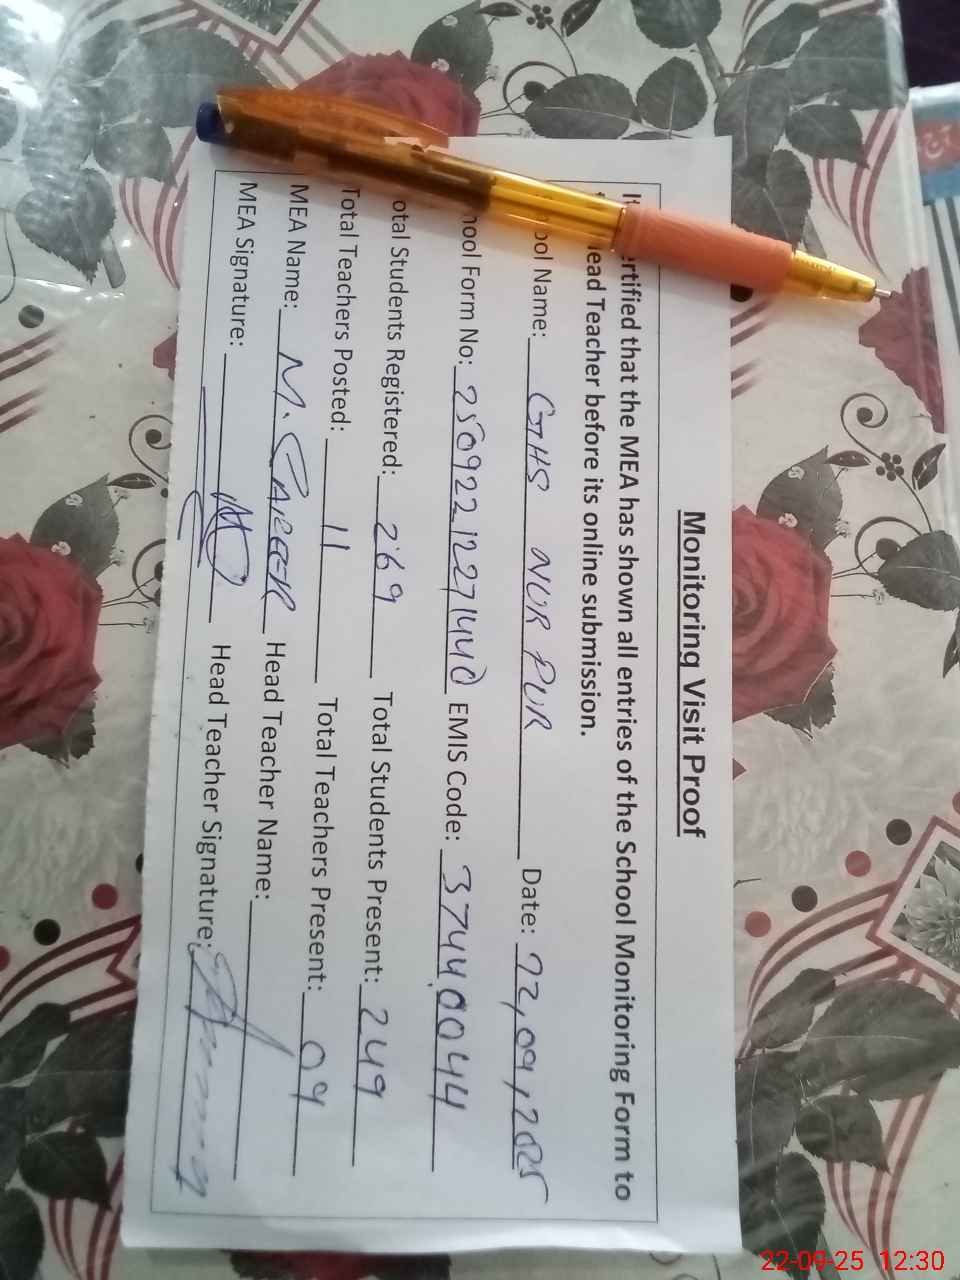 Monitoring Visit Proof
It ertified that the MEA has shown all entries of the School Monitoring Form to
ead Teacher before its online submission.
ool Name: GHS NUR PUR Date: 22,09,2025
hool Form No: 25092212271440 EMIS Code: 37440044
otal Students Registered: 269 Total Students Present: 249
Total Teachers Posted: 11 Total Teachers Present: 09
MEA Name: M. Head Teacher Name:
MEA Signature: Head Teacher Signature:
22-09-25 12:30